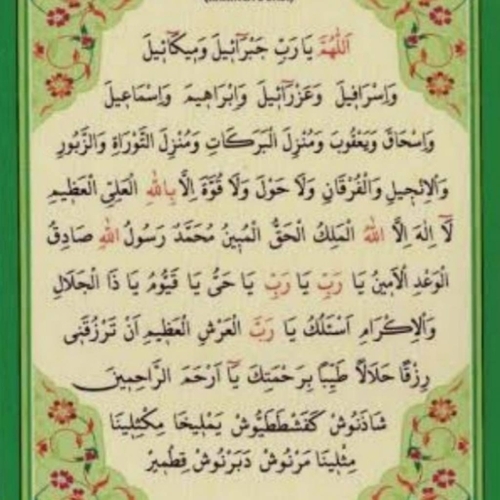 اَللّٰهُمَّ يَا رَبِّ جَبْرَآئِيلَ وَمِيكَآئِيلَ
وَاِسْرَافِيلَ وَعَزْرَآئِيلَ وَاِبْرَاهِيمَ وَاِسْمَاعِيلَ
وَاِسْحَاقَ وَيَعْقُوبَ وَمُنْزِلَ الْبَرَكَاتِ وَمُنْزِلَ التَّوْرَاةِ وَالزَّبُورِ
وَالْاِنْجِيلِ وَالْفُرْقَانِ وَلَا حَوْلَ وَلَا قُوَّةَ اِلَّا بِاللّٰهِ الْعَلِىِّ الْعَظِيمِ
لَآ اِلٰهَ اِلَّا اللّٰهُ الْمَلِكُ الْحَقُّ الْمُبِينُ مُحَمَّدٌ رَسُولُ اللّٰهِ صَادِقُ
الْوَعْدِ الْاَمِينُ يَا رَبِّ يَا رَبِّ يَا حَىُّ يَا قَيُّومُ يَا ذَا الْجَلَالِ
وَالْاِكْرَامِ اَسْئَلُكَ يَا رَبَّ الْعَرْشِ الْعَظِيمِ اَنْ تَرْزُقَنِى
رِزْقًا حَلَالًا طَيِّبًا بِرَحْمَتِكَ يَآ اَرْحَمَ الرَّاحِمِينَ
شَاذَنُوشْ كَفَشْطَطَيُّوشْ يَمْلِيخَا مِكْثِلِينَا
مِثْلِينَا مَرْنُوشْ دَبَرْنُوشْ قِطْمِيرْ